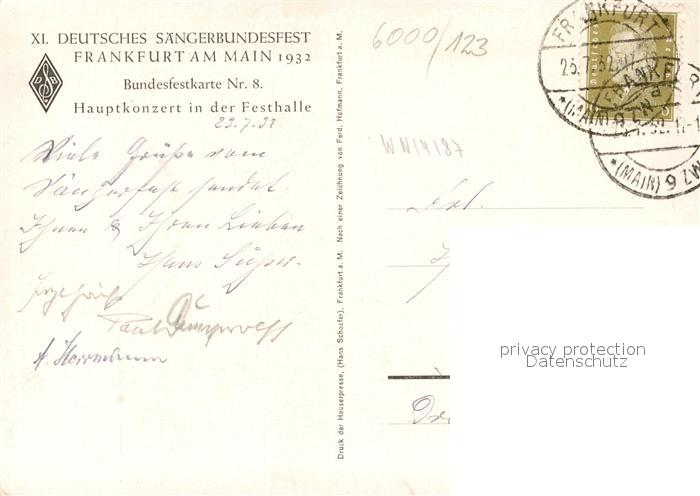 XI. DEUTSCHES SÄNGERBUNDESFEST
FRANKFURT AM MAIN 1932
DSB
Bundesfestkarte Nr. 8.
Hauptkonzert in der Festhalle
23.7.32
Viele Grüße vom
Sängerfest sendet
Ihnen & Ihren Lieben
Hans
Paul
A. Herrmann
Druck der Hauserpresse, (Hans Schaefer), Frankfurt a. M. Nach einer Zeichnung von Ferd. Hofmann, Frankfurt a. M.
6000/123
WN14187
FRANKFURT
(MAIN) 9
(MAIN) 9
Frl.
privacy protection
Datenschutz